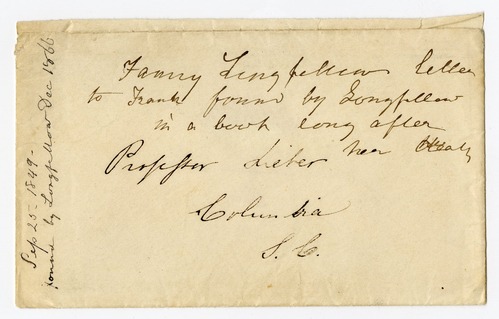 Fanny Longfellow letter
to Frank found by Longfellow
in a book long after
her death
Professor Lieber
Columbia
S. C.
Sep 25 - 1849 -
found by Longfellow Dec 1866